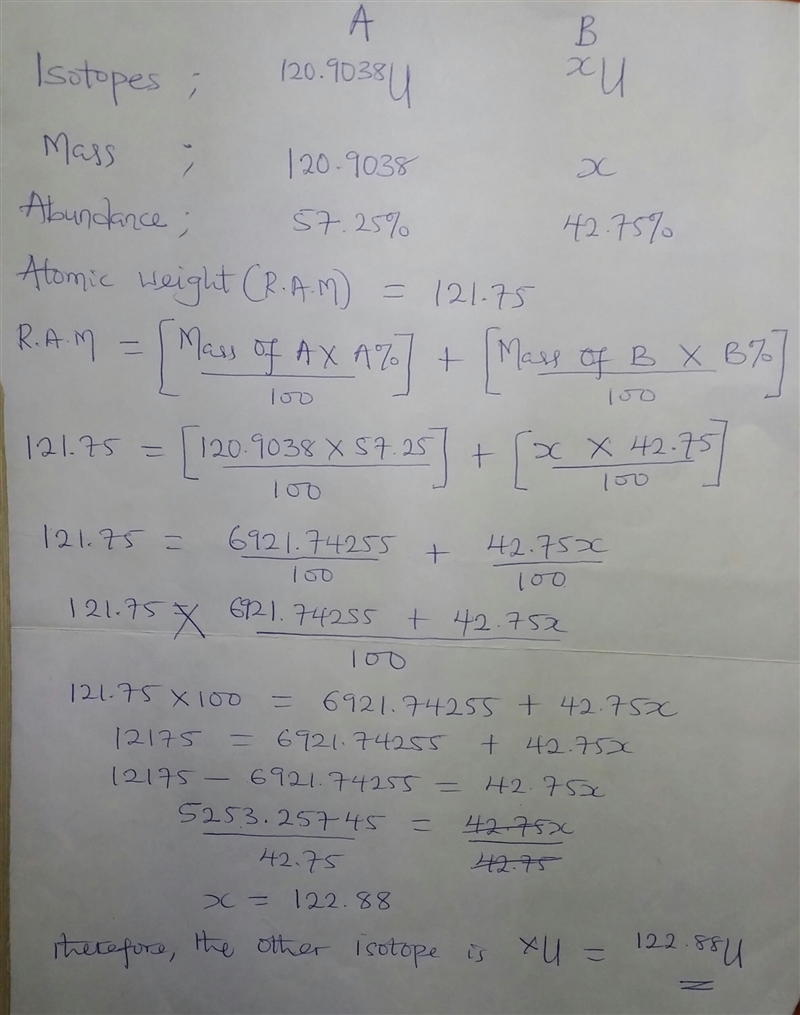 A B
Isotopes ; 120.9038U xU
Mass ; 120.9038 x
Abundance ; 57.25% 42.75%
Atomic weight (R.A.M) = 121.75
R.A.M = [Mass of A X A% / 100] + [Mass of B X B% / 100]
121.75 = [120.9038 X 57.25 / 100] + [x X 42.75 / 100]
121.75 = 6921.74255 / 100 + 42.75x / 100
121.75 = 6921.74255 + 42.75x / 100
121.75 X 100 = 6921.74255 + 42.75x
12175 = 6921.74255 + 42.75x
12175 - 6921.74255 = 42.75x
5253.25745 / 42.75 = 42.75x / 42.75
x = 122.88
therefore, the other isotope is xU = 122.88U